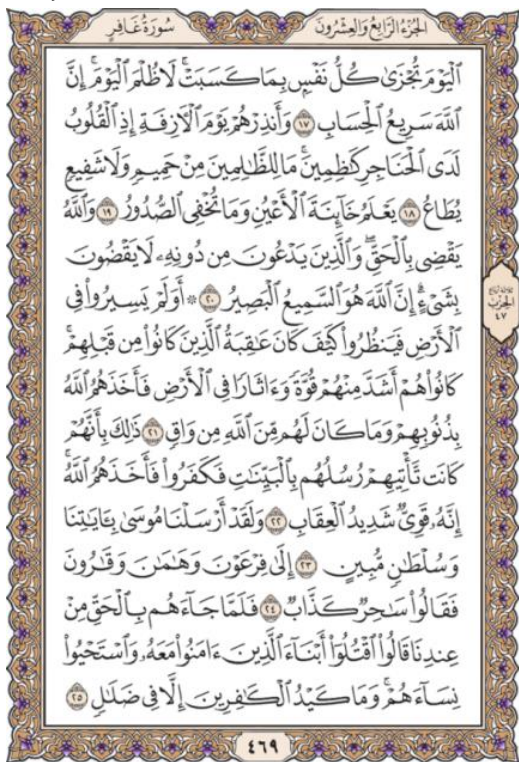 الجُزْءُ الرَّابِعُ وَالعِشْرُونَ
سُورَةُ غَافِرٍ
ٱلۡيَوۡمَ تُجۡزَىٰ كُلُّ نَفۡسِۭ بِمَا كَسَبَتۡۚ لَا ظُلۡمَ ٱلۡيَوۡمَۚ إِنَّ
ٱللَّهَ سَرِيعُ ٱلۡحِسَابِ ١٧ وَأَنذِرۡهُمۡ يَوۡمَ ٱلۡأٓزِفَةِ إِذِ ٱلۡقُلُوبُ
لَدَى ٱلۡحَنَاجِرِ كَٰظِمِينَۚ مَا لِلظَّٰلِمِينَ مِنۡ حَمِيمٖ وَلَا شَفِيعٖ
يُطَاعُ ١٨ يَعۡلَمُ خَآئِنَةَ ٱلۡأَعۡيُنِ وَمَا تُخۡفِي ٱلصُّدُورُ ١٩ وَٱللَّهُ
يَقۡضِي بِٱلۡحَقِّۖ وَٱلَّذِينَ يَدۡعُونَ مِن دُونِهِۦ لَا يَقۡضُونَ
بِشَيۡءٍۗ إِنَّ ٱللَّهَ هُوَ ٱلسَّمِيعُ ٱلۡبَصِيرُ ٢٠ ۞ أَوَلَمۡ يَسِيرُواْ فِي
ٱلۡأَرۡضِ فَيَنظُرُواْ كَيۡفَ كَانَ عَٰقِبَةُ ٱلَّذِينَ كَانُواْ مِن قَبۡلِهِمۡۚ
كَانُواْ هُمۡ أَشَدَّ مِنۡهُمۡ قُوَّةٗ وَءَاثَارٗا فِي ٱلۡأَرۡضِ فَأَخَذَهُمُ ٱللَّهُ
بِذُنُوبِهِمۡ وَمَا كَانَ لَهُم مِّنَ ٱللَّهِ مِن وَاقٖ ٢١ ذَٰلِكَ بِأَنَّهُمۡ
كَانَت تَّأۡتِيهِمۡ رُسُلُهُم بِٱلۡبَيِّنَٰتِ فَكَفَرُواْ فَأَخَذَهُمُ ٱللَّهُۚ
إِنَّهُۥ قَوِيّٞ شَدِيدُ ٱلۡعِقَابِ ٢٢ وَلَقَدۡ أَرۡسَلۡنَا مُوسَىٰ بِـَٔايَٰتِنَا
وَسُلۡطَٰنٖ مُّبِينٍ ٢٣ إِلَىٰ فِرۡعَوۡنَ وَهَٰمَٰنَ وَقَٰرُونَ
فَقَالُواْ سَٰحِرٞ كَذَّابٞ ٢٤ فَلَمَّا جَآءَهُم بِٱلۡحَقِّ مِنۡ
عِندِنَا قَالُواْ ٱقۡتُلُوٓاْ أَبۡنَآءَ ٱلَّذِينَ ءَامَنُواْ مَعَهُۥ وَٱسۡتَحۡيُواْ
نِسَآءَهُمۡۚ وَمَا كَيۡدُ ٱلۡكَٰفِرِينَ إِلَّا فِي ضَلَٰلٖ ٢٥
ثلاثة أرباع
الحزب
٤٧
٤٦٩